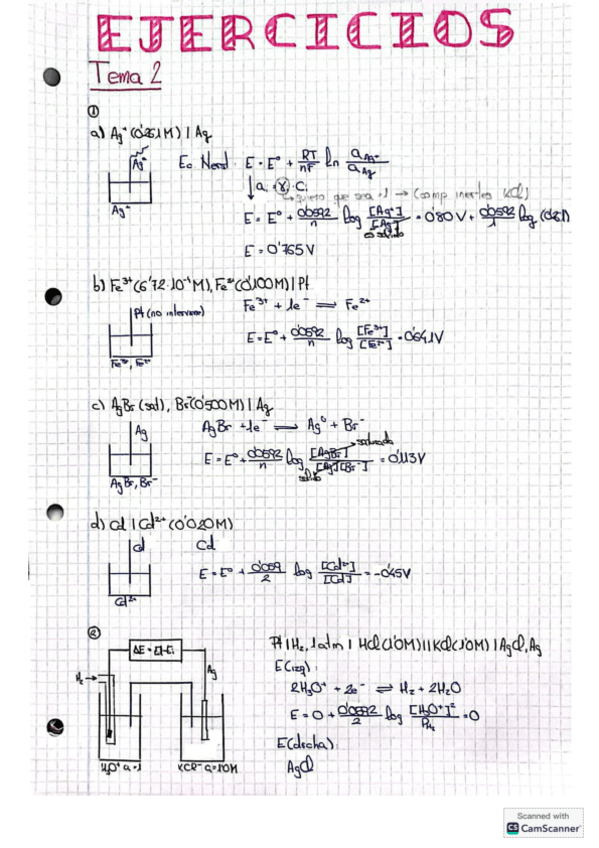 EJERCICIOS
Tema 2
①
a) Ag⁺ (0'261M) | Ag
Ec Nernst: E = E° + RT/nF ln a Ag⁺/a Ag
Ag
a = γ · Ci
quiero que sea 1 → (comp inertes KCl)
Ag⁺
E = E° + 0'0592/n log [Ag⁺]/[Ag] = 0'80 V + 0'0592/1 log (0'261)
sólido
E = 0'765 V
b) Fe³⁺ (6'72·10⁻⁴ M), Fe²⁺ (0'100M) | Pt
Pt (no interviene)
Fe³⁺ + 1e⁻ ⇌ Fe²⁺
E = E° + 0'0592/n log [Fe³⁺]/[Fe²⁺] = 0'641V
Fe³⁺, Fe²⁺
c) AgBr (sat), Br⁻ (0'500M) | Ag
Ag
AgBr + 1e⁻ ⇌ Ag⁰ + Br⁻
E = E° + 0'0592/n log [AgBr]/[Ag][Br⁻] = 0'113 V
sólido
AgBr, Br⁻
d) Cd | Cd²⁺ (0'020M)
Cd
Cd
E = E° + 0'059/2 log [Cd²⁺]/[Cd] = -0'45V
Cd²⁺
②
Pt | H₂, 1atm | HCl (1'0M) || KCl (1'0M) | AgCl, Ag
E(izq):
H₂ →
Ag
2H₃O⁺ + 2e⁻ ⇌ H₂ + 2H₂O
E = 0 + 0'0592/2 log [H₃O⁺]²/P H₂ = 0
E(dcha):
AgCl
H₃O⁺ a = 1
Scanned with
CS CamScanner